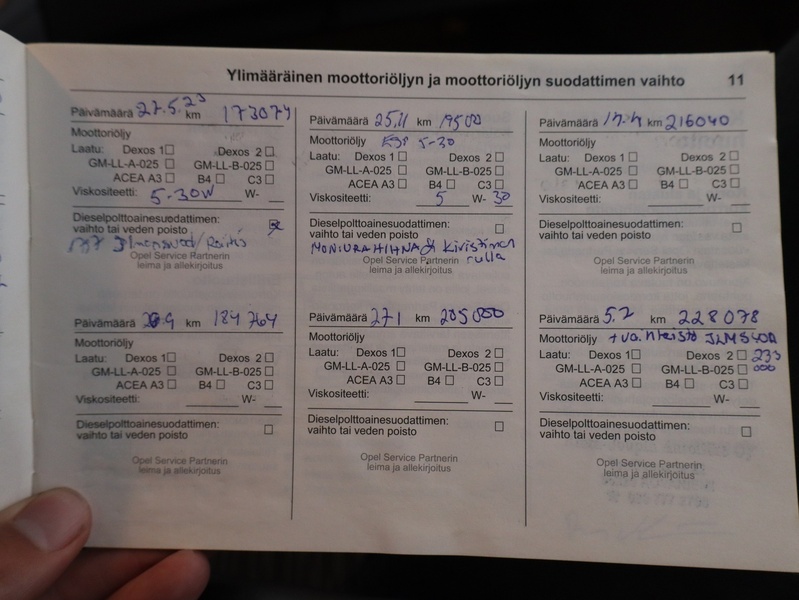 Ylimääräinen moottoriöljyn ja moottoriöljyn suodattimen vaihto 11
Päivämäärä 27.5.23 km 173074
Moottoriöljy
Laatu: Dexos 1 ☐ Dexos 2 ☐
GM-LL-A-025 ☐ GM-LL-B-025 ☐
ACEA A3 ☐ B4 ☐ C3 ☐
Viskositeetti: 5-30W W-
Dieselpolttoainesuodattimen:
vaihto tai veden poisto ☒
Opel Service Partnerin
leima ja allekirjoitus
Päivämäärä 29.9 km 184764
Moottoriöljy
Laatu: Dexos 1 ☐ Dexos 2 ☐
GM-LL-A-025 ☐ GM-LL-B-025 ☐
ACEA A3 ☐ B4 ☐ C3 ☐
Viskositeetti: W-
Dieselpolttoainesuodattimen:
vaihto tai veden poisto ☐
Opel Service Partnerin
leima ja allekirjoitus
Päivämäärä 25.11 km 19500
Moottoriöljy 5-30
Laatu: Dexos 1 ☐ Dexos 2 ☐
GM-LL-A-025 ☐ GM-LL-B-025 ☐
ACEA A3 ☐ B4 ☐ C3 ☐
Viskositeetti: 5 W- 30
Dieselpolttoainesuodattimen:
vaihto tai veden poisto ☐
MONIURAHIHNA & kiristimen
rulla
Opel Service Partnerin
leima ja allekirjoitus
Päivämäärä 27.1 km 205000
Moottoriöljy
Laatu: Dexos 1 ☐ Dexos 2 ☐
GM-LL-A-025 ☐ GM-LL-B-025 ☐
ACEA A3 ☐ B4 ☐ C3 ☐
Viskositeetti: W-
Dieselpolttoainesuodattimen:
vaihto tai veden poisto ☐
Opel Service Partnerin
leima ja allekirjoitus
Päivämäärä 17.4 km 216040
Moottoriöljy
Laatu: Dexos 1 ☐ Dexos 2 ☐
GM-LL-A-025 ☐ GM-LL-B-025 ☐
ACEA A3 ☐ B4 ☐ C3 ☐
Viskositeetti: W-
Dieselpolttoainesuodattimen:
vaihto tai veden poisto ☐
Opel Service Partnerin
leima ja allekirjoitus
Päivämäärä 5.2 km 228078
Moottoriöljy
Laatu: Dexos 1 ☐ Dexos 2 ☐ 233
GM-LL-A-025 ☐ GM-LL-B-025 ☐ 000
ACEA A3 ☐ B4 ☐ C3 ☐
Viskositeetti: W-
Dieselpolttoainesuodattimen:
vaihto tai veden poisto ☐
Opel Service Partnerin
leima ja allekirjoitus